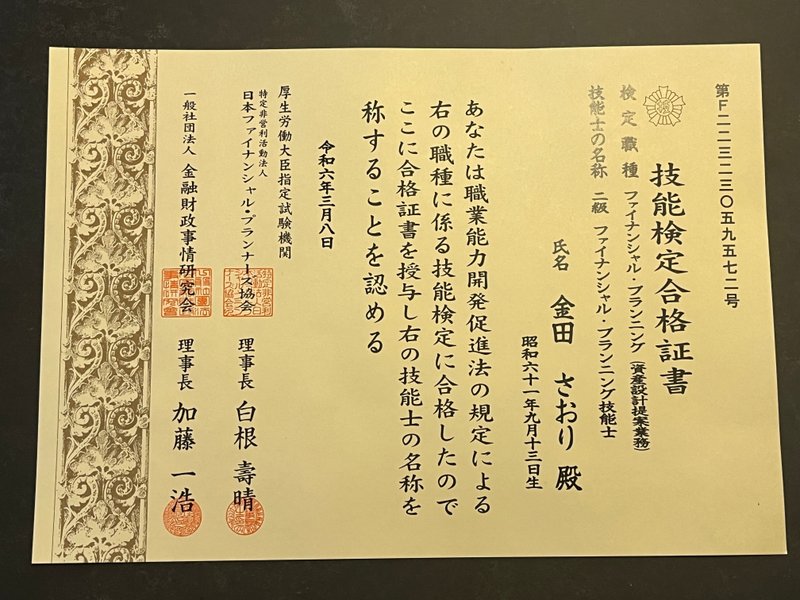 第F二二三二三〇五九五七二号
技能検定合格証書
検定職種 ファイナンシャル・プランニング(資産設計提案業務)
技能士の名称 二級 ファイナンシャル・プランニング技能士
氏名 金田 さおり 殿
昭和六十一年九月十三日生
あなたは職業能力開発促進法の規定による
右の職種に係る技能検定に合格したので
ここに合格証書を授与し右の技能士の名称を
称することを認める
令和六年三月八日
厚生労働大臣指定試験機関
特定非営利活動法人
日本ファイナンシャル・プランナーズ協会 理事長 白根 壽晴
一般社団法人 金融財政事情研究会 理事長 加藤 一浩